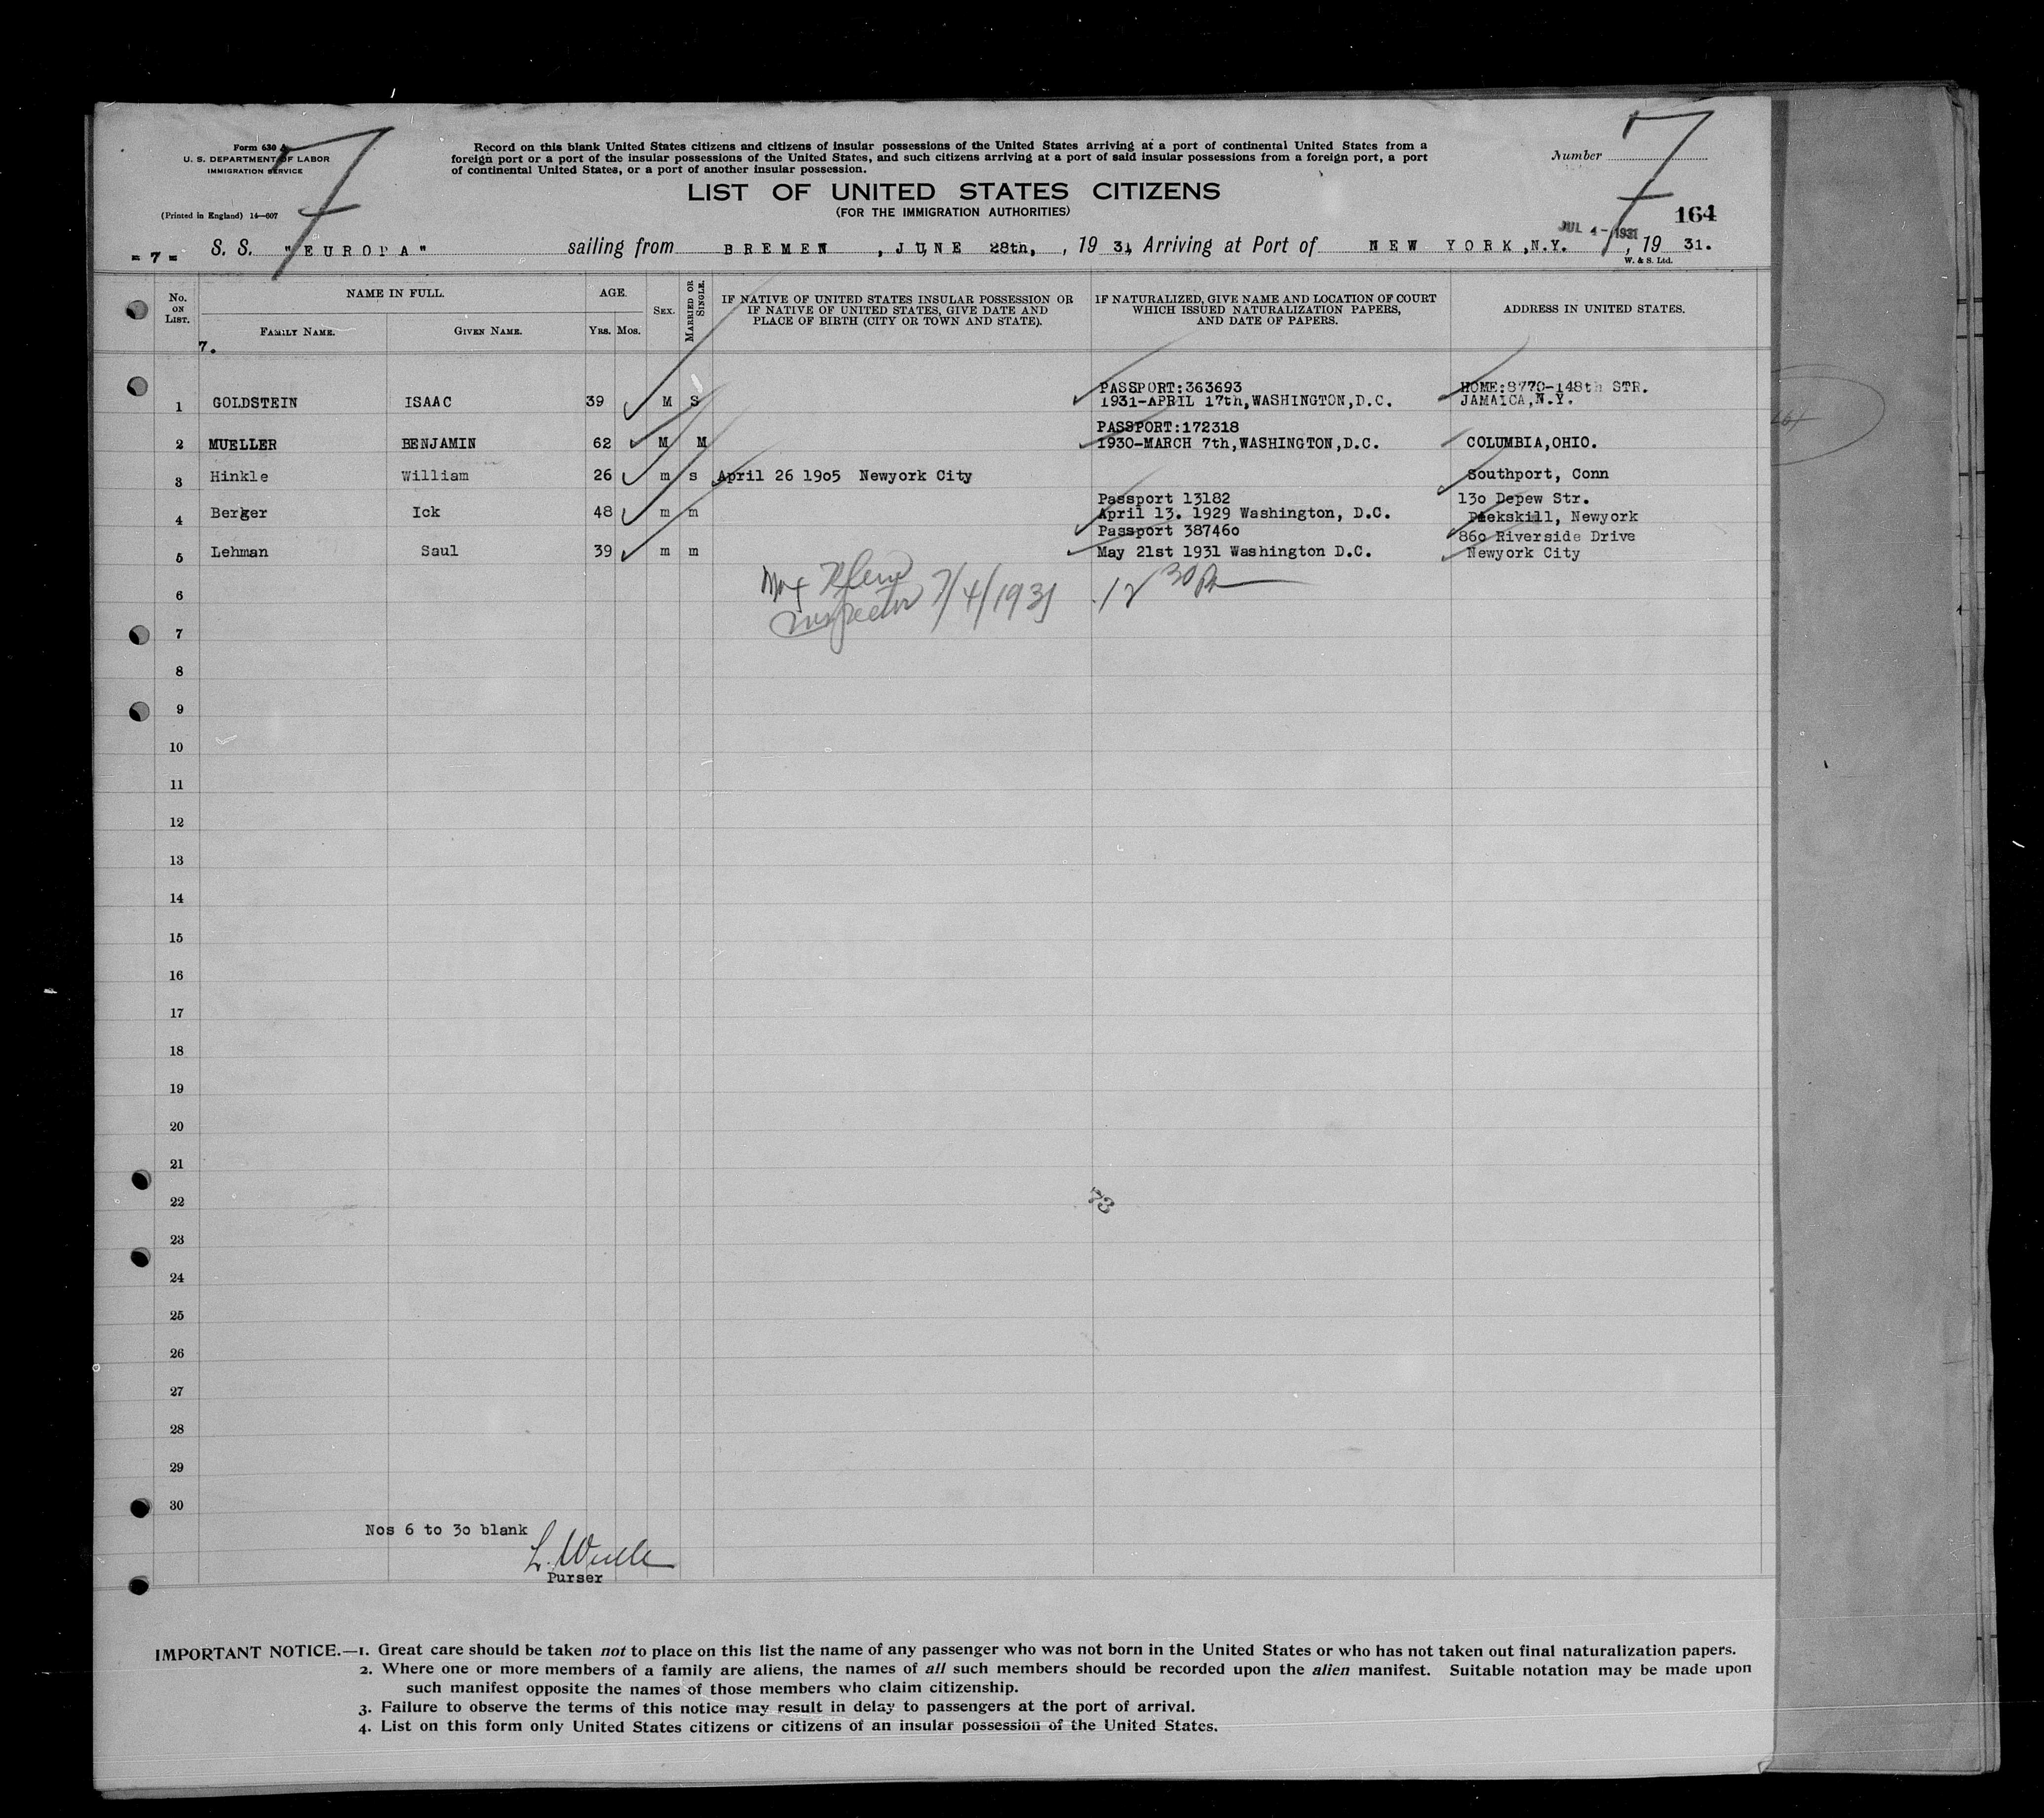 Form 630 A
U. S. DEPARTMENT OF LABOR
IMMIGRATION SERVICE
(Printed in England) 14—607
7
Record on this blank United States citizens and citizens of insular possessions of the United States arriving at a port of continental United States from a
foreign port or a port of the insular possessions of the United States, and such citizens arriving at a port of said insular possessions from a foreign port, a port
of continental United States, or a port of another insular possession.
LIST OF UNITED STATES CITIZENS
(FOR THE IMMIGRATION AUTHORITIES)
Number
7
164
JUL 4 - 1931
- 7 - S. S. "EUROPA" sailing from BREMEN, JUNE 28th, , 19 31, Arriving at Port of NEW YORK, N.Y. , 19 31.
W. & S. Ltd.
No. ON LIST. NAME IN FULL. AGE. SEX. MARRIED OR SINGLE. IF NATIVE OF UNITED STATES INSULAR POSSESSION OR IF NATIVE OF UNITED STATES, GIVE DATE AND PLACE OF BIRTH (CITY OR TOWN AND STATE). IF NATURALIZED, GIVE NAME AND LOCATION OF COURT WHICH ISSUED NATURALIZATION PAPERS, AND DATE OF PAPERS. ADDRESS IN UNITED STATES.
FAMILY NAME. GIVEN NAME. YRS. MOS.
7.
PASSPORT:363693 HOME:8770-148th STR.
1 GOLDSTEIN ISAAC 39 M S 1931-APRIL 17th, WASHINGTON, D.C. JAMAICA, N.Y.
PASSPORT:172318
2 MUELLER BENJAMIN 62 M M 1930-MARCH 7th, WASHINGTON, D.C. COLUMBIA, OHIO.
3 Hinkle William 26 m s April 26 19o5 Newyork City Southport, Conn
Passport 13182 13o Depew Str.
4 Berger Ick 48 m m April 13. 1929 Washington, D.C. Peekskill, Newyork
Passport 38746o 86o Riverside Drive
5 Lehman Saul 39 m m May 21st 1931 Washington D.C. Newyork City
6
Inspector 7/4/1931 12 30
7
8
9
10
11
12
13
14
15
16
17
18
19
20
21
22
73
23
24
25
26
27
28
29
30
Nos 6 to 3o blank
Purser
IMPORTANT NOTICE.—1. Great care should be taken not to place on this list the name of any passenger who was not born in the United States or who has not taken out final naturalization papers.
2. Where one or more members of a family are aliens, the names of all such members should be recorded upon the alien manifest. Suitable notation may be made upon
such manifest opposite the names of those members who claim citizenship.
3. Failure to observe the terms of this notice may result in delay to passengers at the port of arrival.
4. List on this form only United States citizens or citizens of an insular possession of the United States.